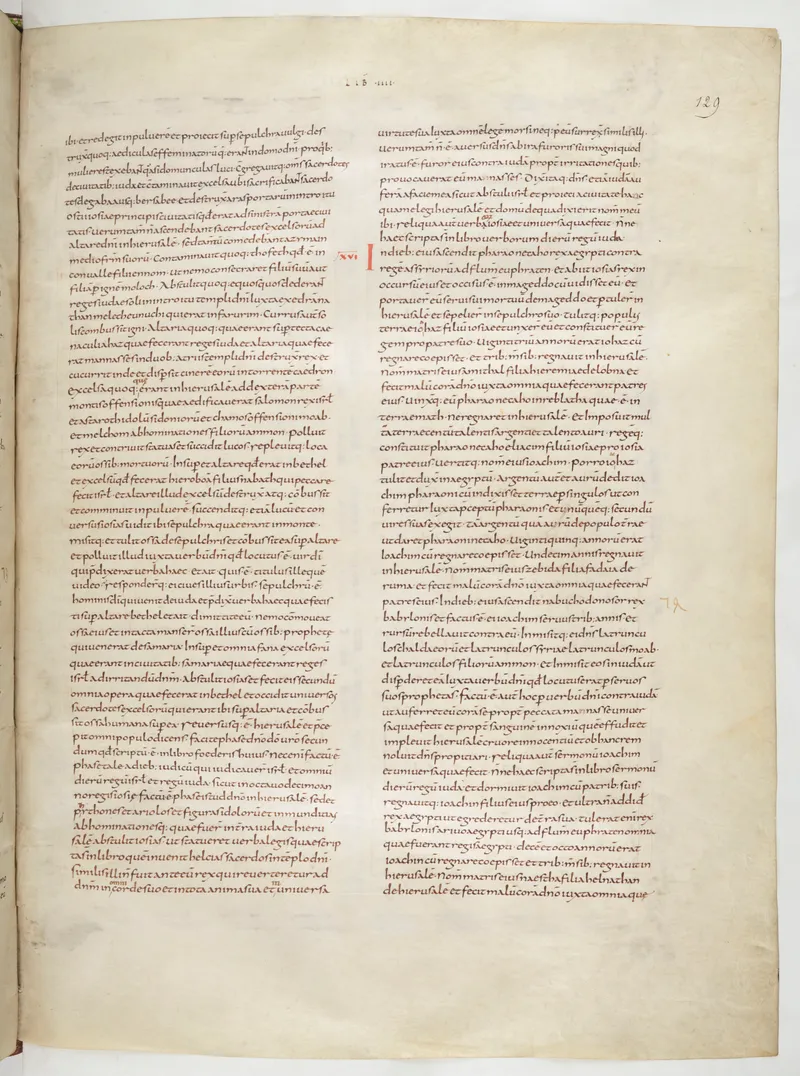 LIB · IIII ·
129
ibi et redegit in puluerē et proiecit sup̄ sepulchra uulgi · des
truxit quoq: aediculas effeminatorū q: erant̄ in domo dn̄i · pro q͂b:
mulieres texebant̄ q͂si domunculas luci · Cōgregauitq: om̄s sacerdotes
de ciuitatib: iuda et cōtaminauit excelsa ubi sacrificabant̄ sacerdo
tes de gabaa usq: bersabee · et destruxit aras portarū in introitu
ostii iosiae principis ciuitatis qd̄ erat ad sinistrā portae ciui
tatis · uerumtam̄ n̄ ascendebant sacerdotes excelsorū ad
altare dn̄i in hierusalē · sed tantū comedebant azyma in
medio fr̄m suorū · Contaminauit quoq: thofeth qd̄ ē in
conualle filii ennom · ut nemo consecraret filiū suū aut
filiā p̄ ignē moloch · Abstulit quoq: equos quos dederant̄
reges iuda soli in introitu templi dn̄i iuxta exedrā na
than melech eunuchi qui erat in farurim · Currus autē so
lis combussit igni · Altaria quoq: quae erant sup̄ tecta cae
naculi ahaz quae fecerant reges iuda et altaria quae fece
rat manasses in duob: atriis templi dn̄i destruxit rex et
cucurrit inde et disp̄sit cinerē eorū in torrentē caedron
excelsa quoq: quae erant in hierusalē ad dexterā partē
montis offensionis quae aedificauerat salomon rex isr̄l
et astaroth idolū sidoniorū et chamos offensioni moab ·
et melchom abhominationē filiorū ammon · polluit
rex et contriuit statuas et succidit lucos · repleuitq: loca
eorū ossib: mortuorū · Insup̄ et altare qd̄ erat in bethel
et excelsū qd̄ fecerat hieroboā filius nabath qui peccare
fecit isr̄l · et altare illud excelsū destruxit atq: cōbussit
et comminuit in puluerē · succenditq: etiā lucū et con
uersus iosias uidit ibi sepulchra quae erant in monte ·
misitq: et tulit ossa de sepulchris et cōbussit ea sup̄ altare
et polluit illud iuxta uerbū dn̄i qd̄ locutus ē uir dī
qui p̄dixerat uerba haec · et ait · quis ē titulus ille quē
uideo · responderq: ei ciues illius urbis · sepulchrū ē
hominis dī qui uenit de iuda et p̄dixit uerba haec quae fecisti
sup̄ altare bethel et ait dimittite eū · nemo cōmoueat
ossa eius et intacta manserꝰ ossa illius cū ossib: prophetę
qui uenerat de samaria · Insup̄ et omnia fana excelsorū
quae erant in ciuitatib: samariae quae fecerant reges
isr̄l ad irritandū dn̄m · Abstulit iosias et fecit eis secundū
omnia opera quae fecerat in bethel et occidit uniuersos
sacerdotes excelsorū qui erant ibi sup̄ altaria et cōbus
sit ossa humana sup̄ ea · reuersusq: ē hierusalē et p̄ce
pit omni populo dicens · facite phase dn̄o dō uro secun
dum qd̄ scriptū ē in libro foederis huius · nec enī factū ē
phase tale a dieb: iudicū qui iudicauerꝰ isr̄l · et omniū
dierū regū isr̄l et regū iuda · sicut in octauo decimo an
no regis iosię factū ē phase istud dn̄o in hierusalē · sed et
phitones et ariolos et figuras idolorū et inmunditias
abhominationesq: quae fuerꝰ in terra iuda et hieru
salē abstulit iosias · ut statueret uerba legis quae scrip
ta s̄t in libro quē inuenit helcias sacerdos in tēplo dn̄i ·
similis illi n̄ fuit ante eū rex qui reuerteretur ad
dn̄m in omni corde suo et in tota anima sua et in uniuersa
uirtute sua iuxta omnē legē mosi · neq: p̄ eū surrexit similis illi ·
uerumtam̄ n̄ ē auersus dn̄s ab ira furoris sui magni quo d
iratus ē furor eius contra iudā propt̄ irritationes quib:
prouocauerat eū manasses · Dixitaq: dn̄s · et iā iudā au
ferā a facie mea sicut abstuli isr̄l · et proiciā ciuitatē hanc
quam elegi hierusalē et domū de qua dixi erit nom̄ meū
ibi · reliqua aūt uerborū iosiae et uniuersa quae fecit · n̄ne
haec scripta s̄t in libro uerborum dierū regū iuda
XVI
In dieb: eius ascendit pharao nechao rex aegypti contra
regē assyriorū ad flum̄ euphraten · et abiit iosias rex in
occursū eius et occisus ē in mageddo cū uidisset eū · et
portauerꝰ eū serui sui mortuū de mageddo et ptulerꝰ in
hierusalē et sepelierꝰ in sepulchro suo · tulitq: populus
terrae ioahaz filiū iosiae et unxerꝰ eū et constituerꝰ eū re
gem pro patre suo · Uiginti triū annorū erat ioahaz cū
regnare coepisset · et trib: m̄sib: regnauit in hierusalē ·
Nom̄ matris eius amithal filia hieremiae de lobna et
fecit malū corā dn̄o iuxta omnia quae fecerant patres
eius · Uinxitq: eū pharao nechao in reblatha quae ē in
terra emath · ne regnaret in hierusalē · et Imposuit mul
tā terrae centū talentis argenti et talento auri · regēq:
constituit pharao nechao eliacim filiū iosiae pro iosia
patre eius · Uertitq: nom̄ eius ioachim · porro ioahaz
tulit et duxit in aegyptū · Argentū aūt et aurū dedit ioa
chim pharaoni cū indixisset terrae p̄ singulos ut con
ferretur iuxta p̄ceptū pharaonis · et unūquēq: secundū
uires suas exegit · tā argentū quā aurū de populo t̄rae
ut daret pharaoni nechao · Uiginti quinq: annorū erat
ioachim cū regnare coepisset · Undecim annis regnauit
in hierusalē · Nom̄ matris eius zebida filia fadaia de
ruma · et fecit malū corā dn̄o iuxta omnia quae fecerant̄
patres eius · In dieb: eius ascendit nabuchodonosor rex
babylonis et factus ē ei ioachim seruus trib: annis · et
rursū rebellauit contra eū · Inmisitq: ei dn̄s latruncu
los chaldaeorū et latrunculos syriae latrunculos moab ·
et latrunculos filiorū ammon · et Inmisit eos in iudā ut
disp̄derent eā iuxta uerbū dn̄i qd̄ locutus erat p̄ seruos
suos prophetas · factū ē aūt hoc p̄ uerbū dn̄i contra iudā
ut auferret eū corā se propt̄ peccata manasse uniuer
sa quae fecit et propt̄ sanguinē innoxiū quē effudit et
impleuit hierusalē cruore innocentiū et ob hanc rem
noluit dn̄s propitiari · reliqua aūt sermonū ioachim
et uniuersa quae fecit · n̄ne haec scripta s̄t in libro sermonū
dierū regū iuda · et dormiuit ioachim cū patrib: suis ·
regnauitq: ioachin filius eius pro eo · et ultra n̄ addid̄
rex aegypti ut egrederetur de tr̄a sua · tulerat enī rex
babylonis a riuo aegypti usq: ad flum̄ euphraten omnia
quae fuerant regis aegypti · decē et octo annorū erat
ioachin cū regnare coepisset et trib: m̄sib: regnauit in
hierusalē · Nom̄ matris eius naestha filia helnathan
de hierusalē et fecit malū corā dn̄o iuxta omnia que